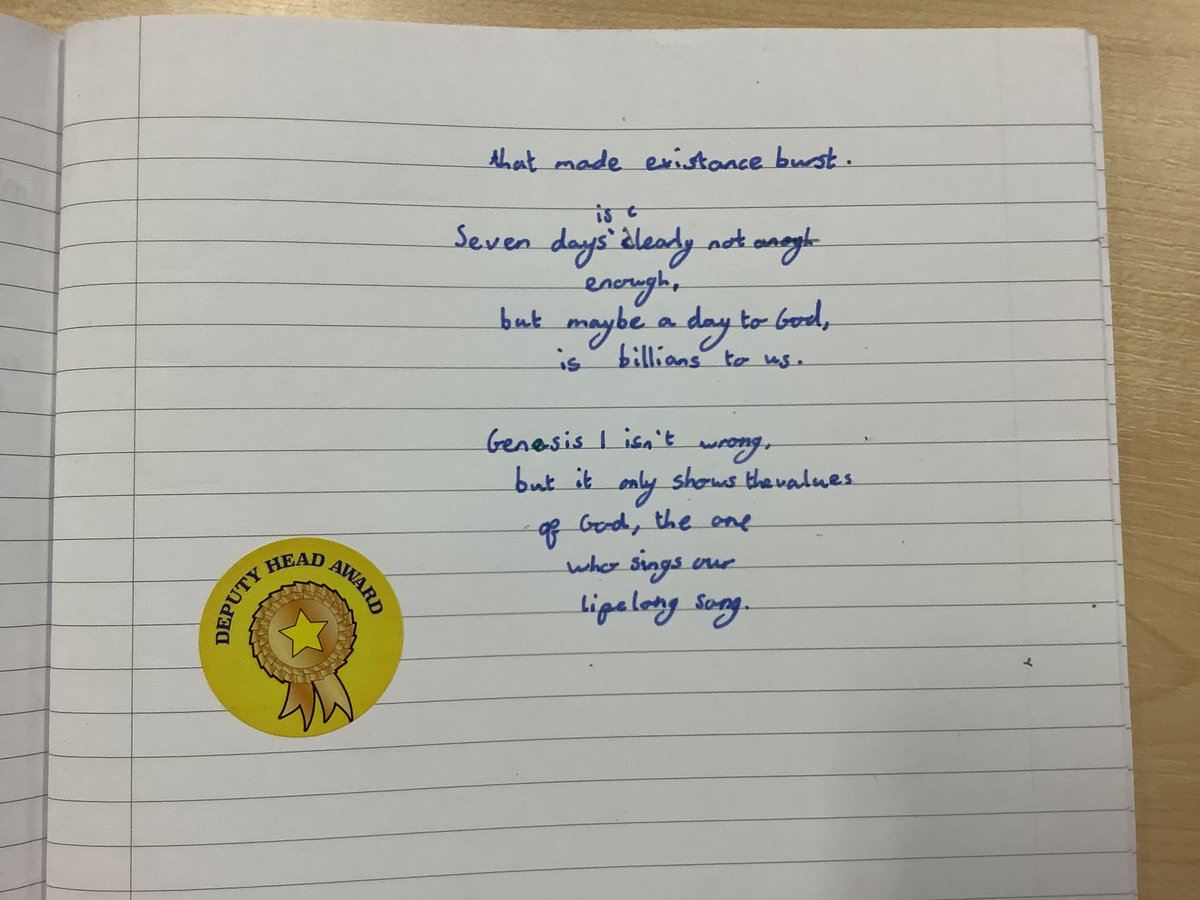 that made existance burst.
is c
Seven days clearly not anogh
enough,
but maybe a day to God,
is billians to us.
Genesis 1 isn't wrong,
but it only shows the values
of God, the one
who sings our
lifelong song.
DEPUTY HEAD AWARD